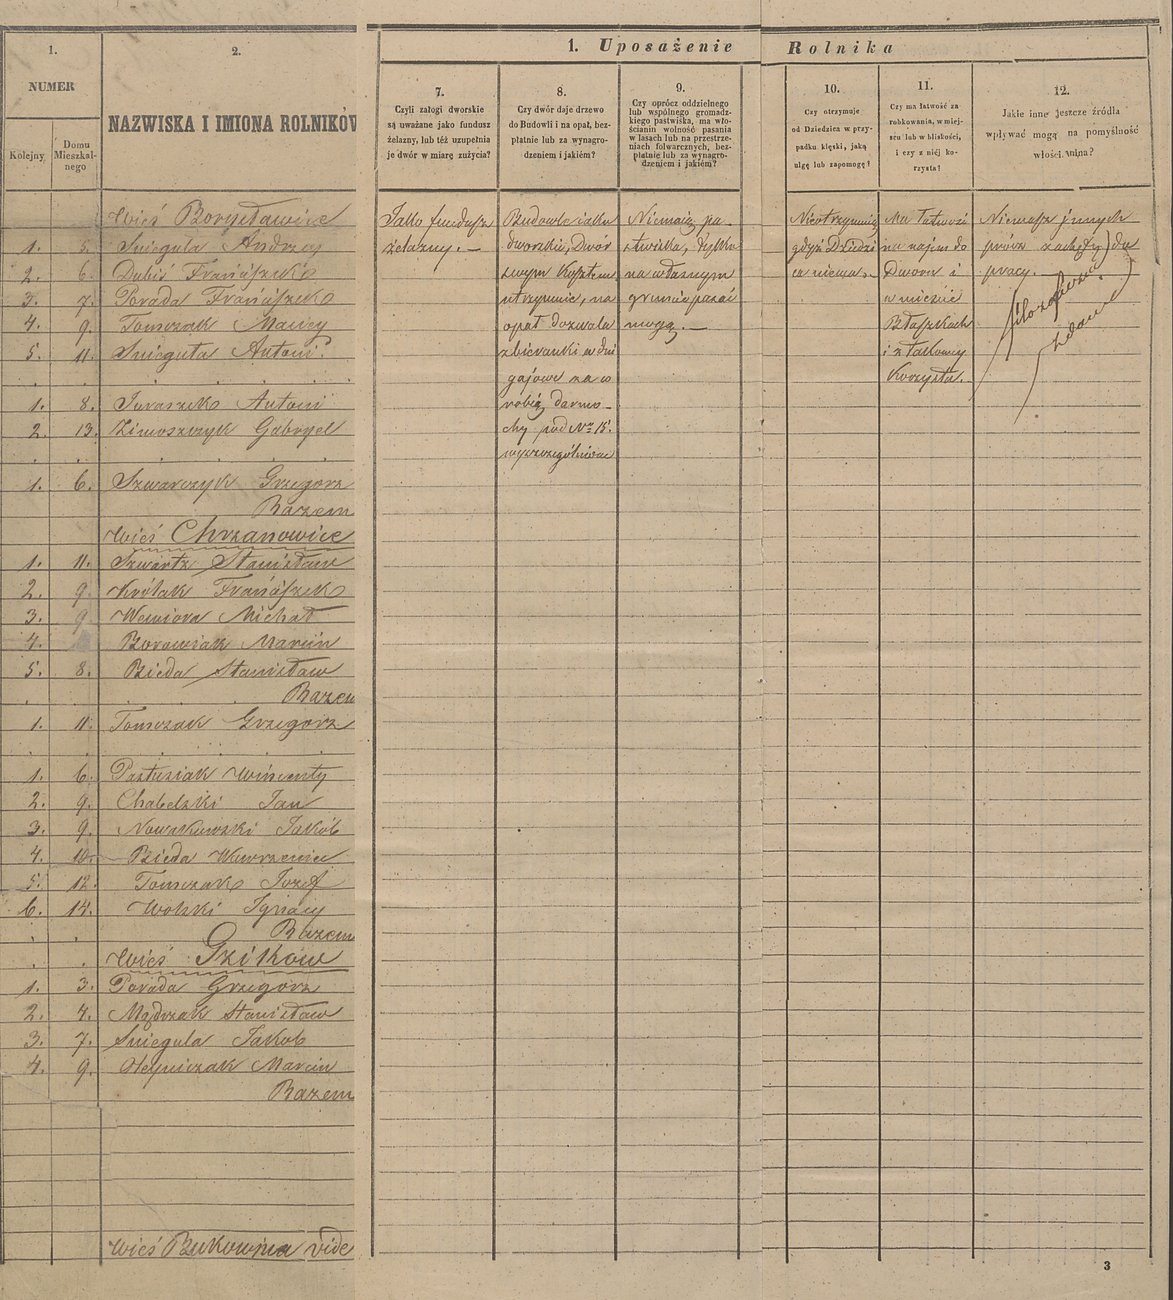 1. Uposażenie Rolnika
1.
NUMER
Kolejny
Domu Mieszkal-
nego
2.
NAZWISKA I IMIONA ROLNIKÓW
7.
Czyli załogi dworskie
są uważane jako fundusz
żelazny, lub téż uzupełnia
je dwór w miarę zużycia?
8.
Czy dwór daje drzewo
do Budowli i na opał, bez-
płatnie lub za wynagro-
dzeniem i jakiém?
9.
Czy oprócz oddzielnego
lub wspólnego gromadz-
kiego pastwiska, ma wło-
ścianin wolność pasania
w lasach lub na przestrze-
niach folwarcznych, bez-
płatnie lub za wynagro-
dzeniem i jakiém?
10.
Czy otrzymuje
od Dziedzica w przy-
padku klęski, jaką
ulgę lub zapomogę?
11.
Czy ma łatwość za
robkowania, w miej-
scu lub w bliskości,
i czy z niéj ko-
rzysta?
12.
Jakie inne jeszcze źródła
wpływać mogą na pomyślność
włościanina?
Wieś Borysławice
1. 5. Sniegula Andrzej
2. 6. Dubis Franciszek
3. 7. Porada Franciszek
4. 9. Tomczak Maciej
5. 11. Sniegula Antoni
1. 8. Juraszek Antoni
2. 13. Zimoszczyk Gabryel
1. 6. Szwarczyk Grzegorz
Razem
Wieś Chrzanowice
1. 11. Szwartz Stanisław
2. 9. Królak Franciszek
3. 9. Wewiora Michał
4. Borowiak Marcin
5. 8. Bieda Stanisław
Razem
1. 11. Tomczak Grzegorz
1. 6. Pastusiak Wincenty
2. 9. Chabelski Jan
3. 9. Nowakowski Jakób
4. 10. Bieda Wawrzeniec
5. 12. Tomczak Jozef
6. 14. Wolski Ignacy
Razem
Wieś Gzików
1. 3. Porada Grzegorz
2. 4. Mądrzak Stanisław
3. 7. Sniegula Jakob
4. 9. Marcin
Razem
Wieś Bukowina vide
Jako fundusz
żelazny. —
Budowle jako
dworskie, dwór
swym Kosztem
utrzymuie, na
opał dozwala
zbieranki w dni
gajowe za co
robią darmo-
chy pod Nr 15.
wyszczególnione
Niemaią pa-
stwiska, tylko
na własnym
gruncie pasać
mogą. —
Nieotrzymuią
gdyż Dziedzi
ca niema. -
Ma łatwość
na najem do
Dworu i
w mieście
Błaszkach
i z takowey
Korzysta.
Niemasz innych
prócz zachęty do
pracy.
3